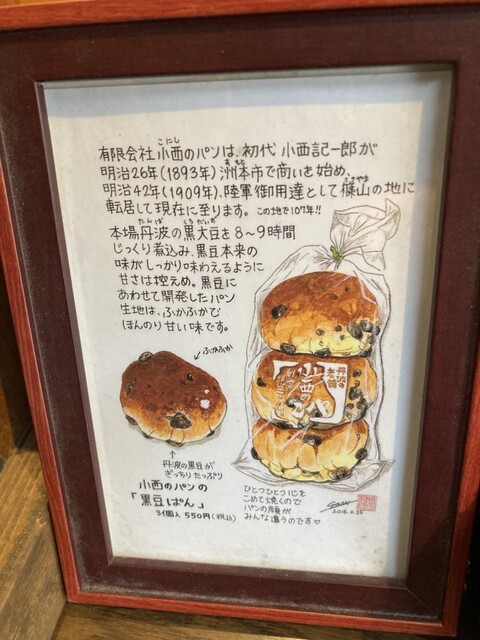 有限会社小西のパンは、初代 小西記一郎が
明治26年(1893年)洲本市で商いを始め、
明治42年(1909年)、陸軍御用達として篠山の地に
転居して現在に至ります。この地で107年!!
本場丹波の黒大豆を8～9時間
じっくり煮込み、黒豆本来の
味がしっかり味わえるように
甘さは控えめ。黒豆に
あわせて開発したパン
生地は、ふかふかで
ほんのり甘い味です。
ふかふか
丹波の黒豆が
ぎっちりたっぷり
小西のパンの
「黒豆ぱん」
3個入 550円(税込)
丹波の
老舗
小西の
パン
ひとつひとつ心を
こめて焼くので
パンの顔が
みんな違うのです♡
2016.2.25